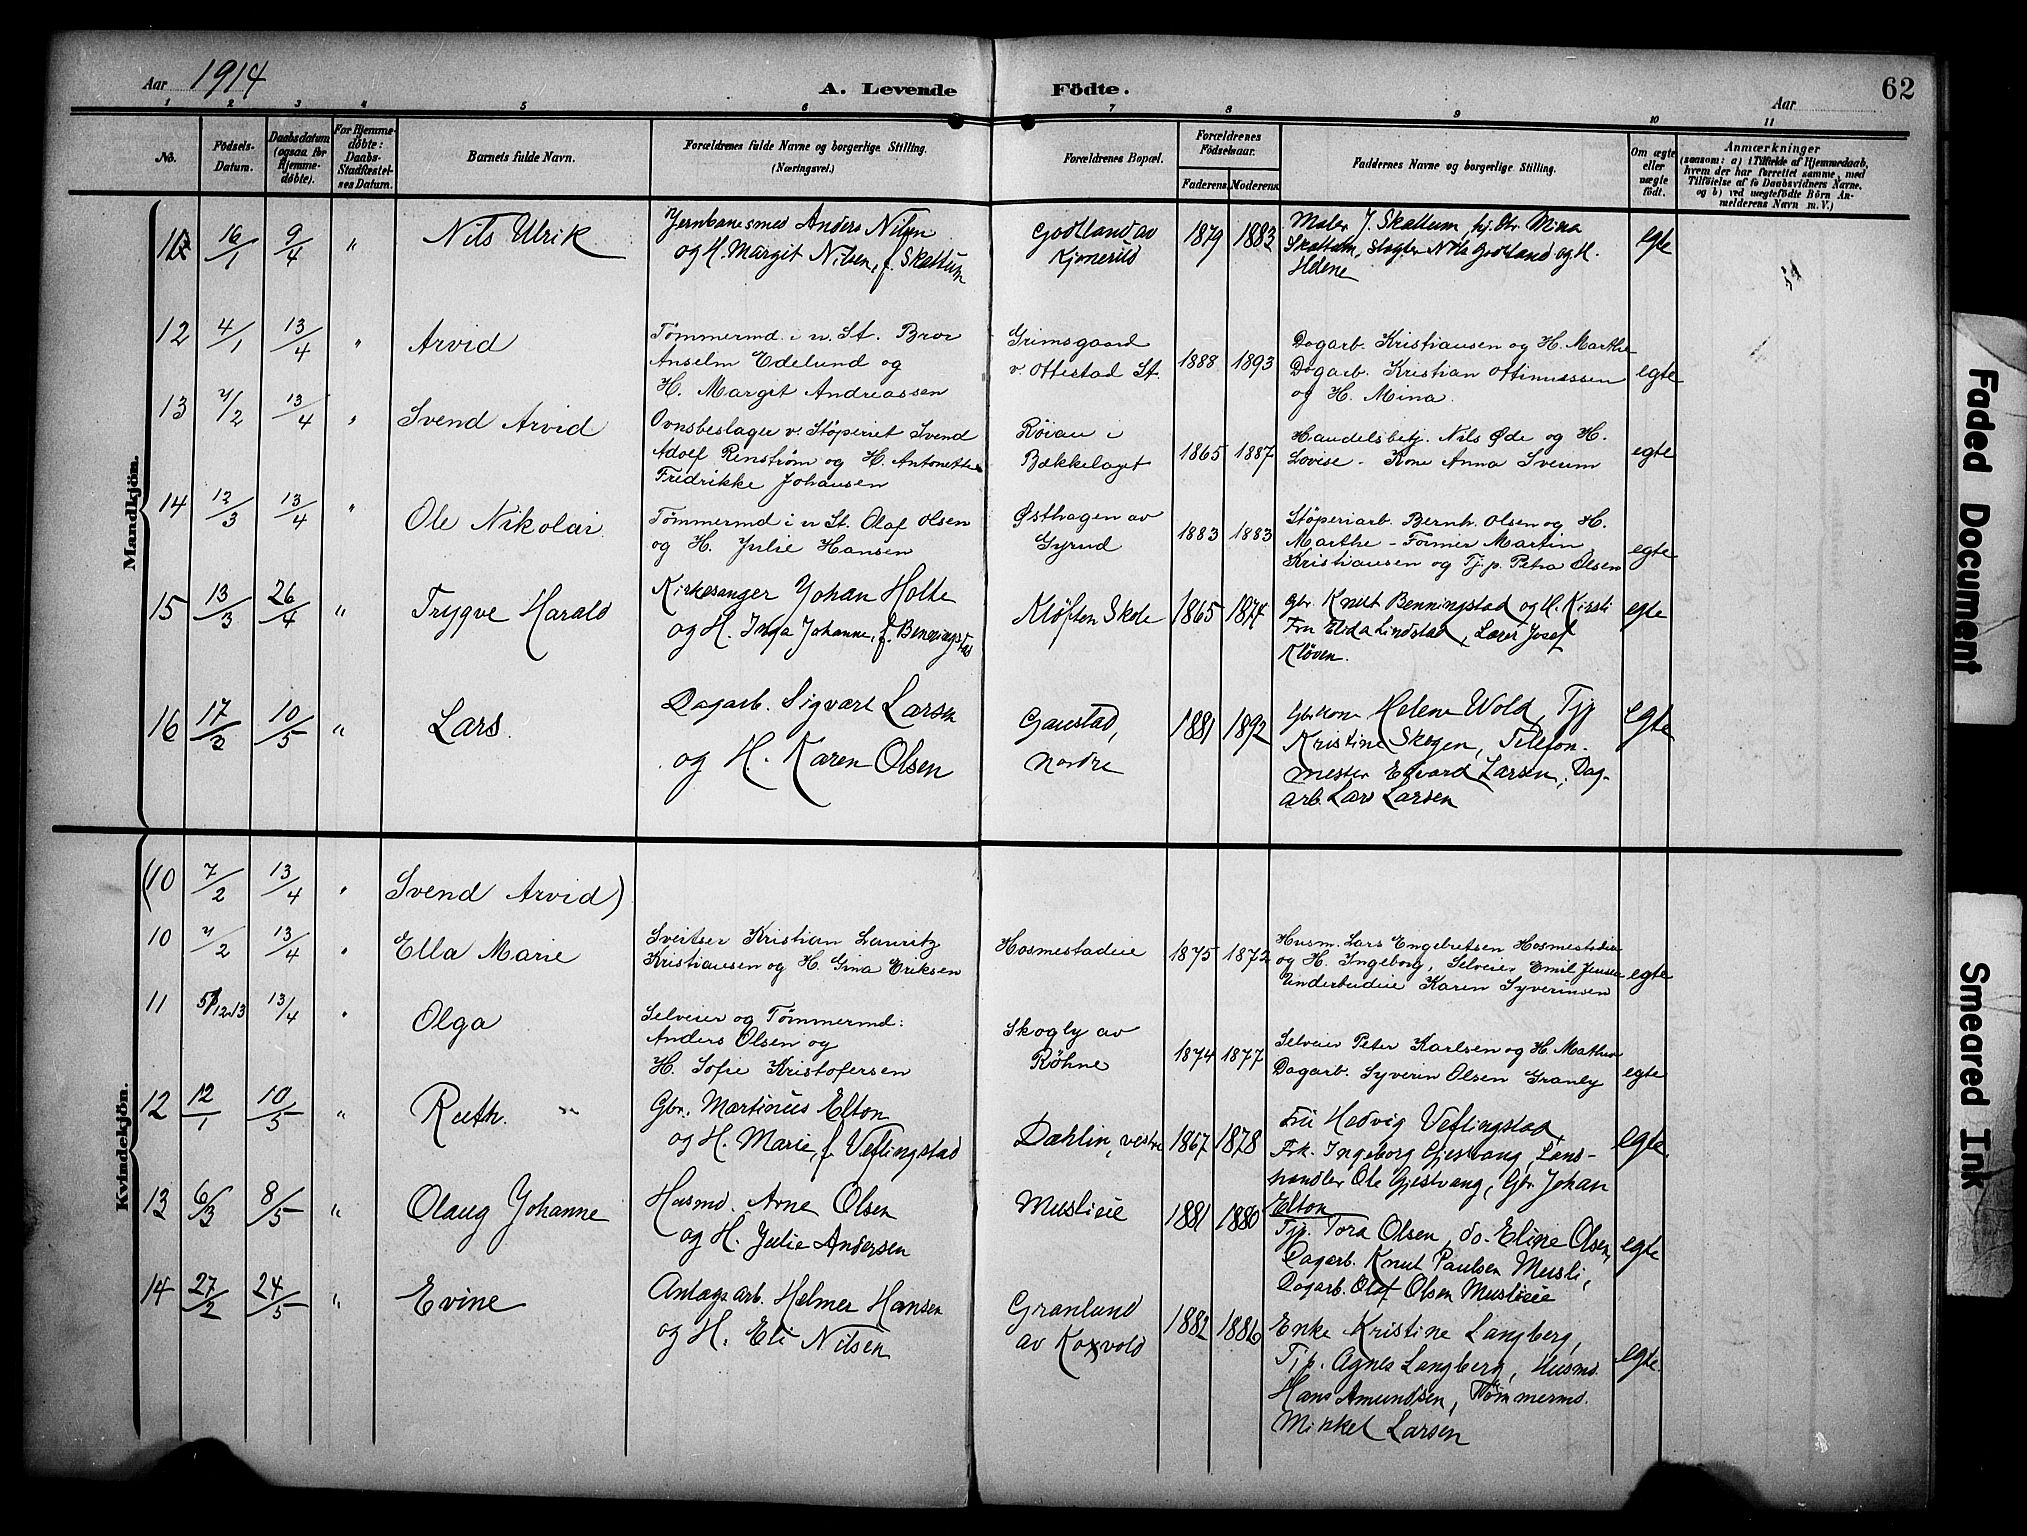 Aar 1914
A. Levende Födte.
62
Aar
1 2 3 4 5 6 7 8 9 10 11
No.
Födsels-
Datum.
Daabsdatum
(ogsaa for
Hjemme-
döbte).
For Hjemme-
döbte:
Daabs-
Stadfæstel-
ses Datum.
Barnets fulde Navn.
Forældrenes fulde Navne og borgerlige Stilling.
(Næringsvei.)
Forældrenes Bopæl.
Forældrenes
Födselsaar.
Faderens. Moderens.
Faddernes Navne og borgerlige Stilling.
Om ægte
eller
uægte
født.
Anmærkninger
(saasom: a) i Tilfælde af Hjemmedaab,
hvem der har forrettet samme, med
Tilföielse af to Daabsvidners Navne,
og b) ved uægtefödte Börn An-
melderens Navn m. V.)
Mandkjön.
11 16/1 9/4 " Nils Ulrik
Jernbanesmed Anders Nilsen
og H. Margit Nilsen, f. Skattum
Godtland av
Kjonerud
1879 1883
Maler J. Skattum, hj.dtr Mina
Skattum, Slagter Nils Godtland og H.
Helene
egte
12 4/1 13/4 " Arvid
Tømmermd. i n. St. Bror
Anselm Edelund og
H. Margit Andreassen
Grimsgaard
v. Ottestad St.
1888 1893
Dagarb. Kristiansen og H. Marthe
Dagarb. Kristian Ottinussen
og H. Mina.
egte
13 7/2 13/4 " Svend Arvid
Ovnsbeslager v. Støperiet Svend
Adolf Renstrøm og H. Antonette
Fredrikke Johansen
Røian i
Bækkelaget
1865 1887
Handelsbetj. Nils Øde og H.
Lovise - Kone Anna Sveum
egte
14 12/3 13/4 " Ole Nikolai
Tømmermd i n St. Olaf Olsen
og H. Julie Hansen
Østhagen av
Gyrud
1883 1883
Støperiarb. Bernh. Olsen og H.
Marthe - Former Martin
Kristiansen og Tj.p. Petra Olsen
egte
15 13/3 26/4 " Trygve Harald
Kirkesanger Johan Holte
og H. Inga Johanne, f. Benningstad
Kløften Skole
1865 1874
Gbr. Knut Benningstad og H. Kirsti
Fru Elida Lindstad, Lærer Josef
Kløven.
egte
16 17/2 10/5 " Lars.
Dagarb. Sigvart Larsen
og H. Karen Olsen
Gaustad,
nordre
1881 1892
Gbr.kone Helene Wold, Tjp
Kristine Skogen, Telefon-
mester Edvard Larsen, Dag-
arb. Lars Larsen
egte
Kvindekjön.
(10 7/2 13/4 " Svend Arvid)
10 7/2 13/4 " Ella Marie
Sveitser Kristian Lauritz
Kristiansen og H. Gina Eriksen
Hosmestadeie
1875 1872
Husm. Lars Engebretsen Hosmestadeie
og H. Ingeborg, Selveier Emil Jensen
Karen Syverinsen
egte
11 5/12 13 13/4 " Olga
Selveier og Tømmermd:
Anders Olsen og
H. Sofie Kristofersen
Skogly av
Røhne
1874 1877
Selveier Peter Karlsen og H. Mathea
Dagarb. Syverin Olsen Granly
egte
12 12/1 10/5 " Ruth.
Gbr. Martinius Elton
og H. Marie, f. Veflingstad
Dæhlin, vestre
1867 1878
Fru Hedvig Veflingstad,
Frk. Ingeborg Gjestvang, Lands-
handler Ole Gjestvang, Gbr. Johan
Elton
egte
13 6/3 8/5 " Olaug Johanne
Husmd. Arne Olsen
og H. Julie Andersen
Muslieie
1881 1880
Tjp. Tora Olsen, do- Eline Olsen,
Dagarb. Knut Paulsen Musli,
Dagarb. Olaf Olsen Muslieie
egte
14 27/2 24/5 " Evine
Anlægsarb. Helmer Hansen
og H. Eli Nilsen
Granlund
av Koxvold
1882 1886
Enke Kristine Langberg,
Tjp. Agnes Langberg, Husmd.
Hans Amundsen, Tømmermd.
Mikkel Larsen
egte.
Faded Document
Smeared Ink